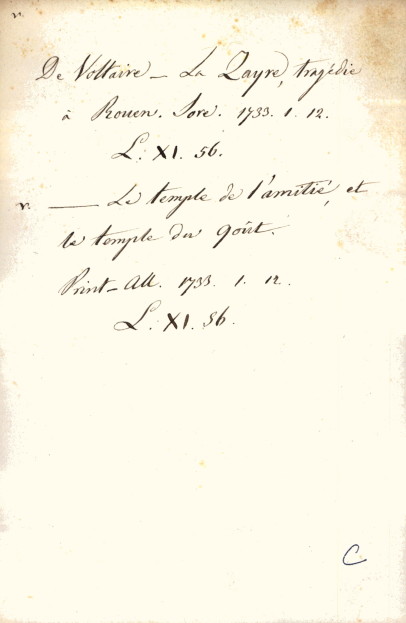 v.
De Voltaire — La Zayre, tragédie
à Rouen. Jore. 1733. 1. 12.
L. XI. 56.
v. ——— Le temple de l'amitié, et
le temple du goût.
Print-All. 1733. 1. 12.
L. XI. 56.
C